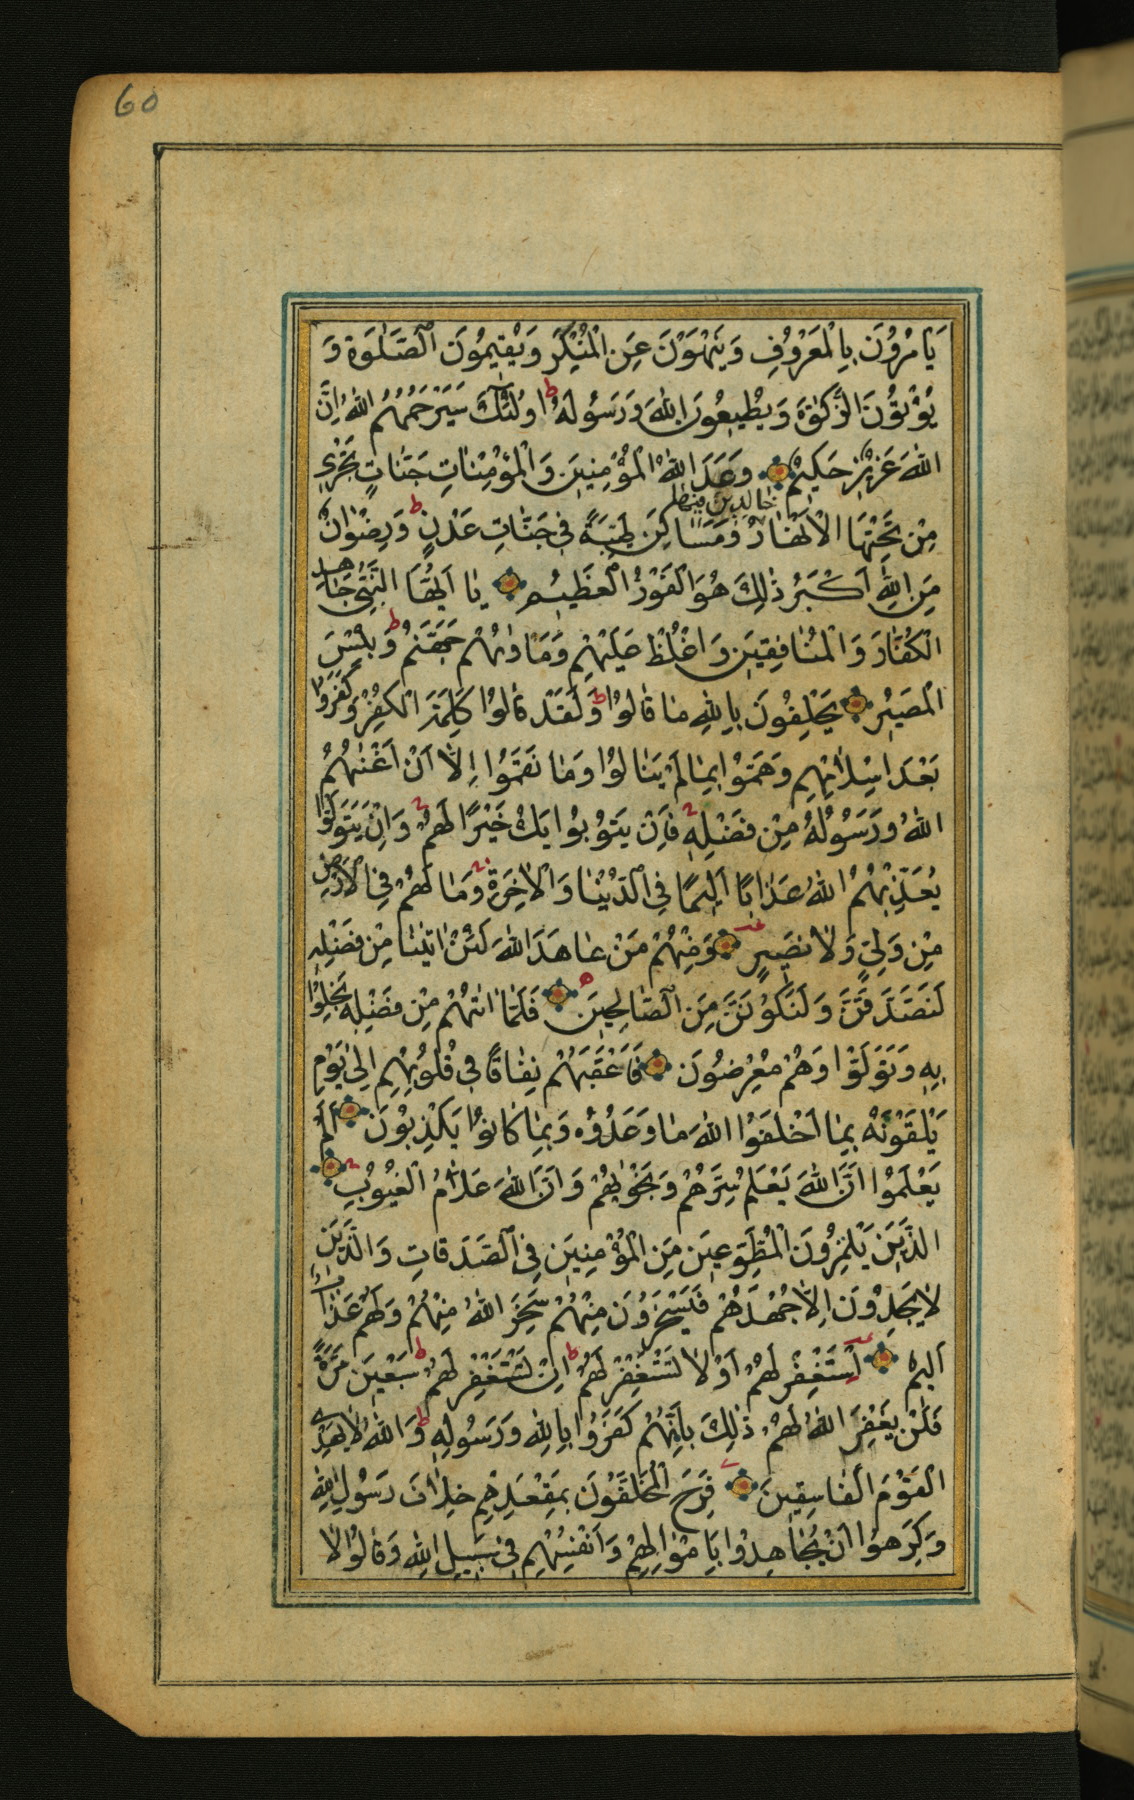 60
يَأمُرُونَ بِالْمَعْرُوفِ وَيَنْهَوْنَ عَنِ الْمُنْكَرِ وَيُقِيمُونَ الصَّلٰوةَ وَ
يُؤْتُونَ الزَّكٰوةَ وَيُطِيعُونَ اللّٰهَ وَرَسُولَهُ ط اُولٰئِكَ سَيَرْحَمُهُمُ اللّٰهُ اِنَّ
اللّٰهَ عَزِيزٌ حَكِيمٌ وَعَدَ اللّٰهُ الْمُؤْمِنِينَ وَالْمُؤْمِنَاتِ جَنَّاتٍ تَجْرِي
خَالِدِينَ فِيهَا
مِنْ تَحْتِهَا الْاَنْهَارُ وَمَسَاكِنَ طَيِّبَةً فِي جَنَّاتِ عَدْنٍ ط وَرِضْوَانٌ
مِنَ اللّٰهِ اَكْبَرُ ذٰلِكَ هُوَ الْفَوْزُ الْعَظِيمُ يَا اَيُّهَا النَّبِيُّ جَاهِدِ
الْكُفَّارَ وَالْمُنَافِقِينَ وَاغْلُظْ عَلَيْهِمْ وَمَاْوٰىهُمْ جَهَنَّمُ ط وَبِئْسَ
الْمَصِيرُ يَحْلِفُونَ بِاللّٰهِ مَا قَالُوا ط وَلَقَدْ قَالُوا كَلِمَةَ الْكُفْرِ وَكَفَرُوا
بَعْدَ اِسْلَامِهِمْ وَهَمُّوا بِمَا لَمْ يَنَالُوا وَمَا نَقَمُوا اِلَّا اَنْ اَغْنٰىهُمُ
اللّٰهُ وَرَسُولُهُ مِنْ فَضْلِهِ فَاِنْ يَتُوبُوا يَكُ خَيْرًا لَهُمْ وَاِنْ يَتَوَلَّوْا
يُعَذِّبْهُمُ اللّٰهُ عَذَابًا اَلِيمًا فِي الدُّنْيَا وَالْاٰخِرَةِ وَمَا لَهُمْ فِي الْاَرْضِ
مِنْ وَلِيٍّ وَلَا نَصِيرٍ وَمِنْهُمْ مَنْ عَاهَدَ اللّٰهَ لَئِنْ اٰتٰينَا مِنْ فَضْلِهِ
لَنَصَّدَّقَنَّ وَلَنَكُونَنَّ مِنَ الصَّالِحِينَ فَلَمَّا اٰتٰهُمْ مِنْ فَضْلِهِ بَخِلُوا
بِهِ وَتَوَلَّوْا وَهُمْ مُعْرِضُونَ فَاَعْقَبَهُمْ نِفَاقًا فِي قُلُوبِهِمْ اِلٰى يَوْمِ
يَلْقَوْنَهُ بِمَا اَخْلَفُوا اللّٰهَ مَا وَعَدُوهُ وَبِمَا كَانُوا يَكْذِبُونَ اَلَمْ
يَعْلَمُوا اَنَّ اللّٰهَ يَعْلَمُ سِرَّهُمْ وَنَجْوٰيهُمْ وَاَنَّ اللّٰهَ عَلَّامُ الْغُيُوبِ
الَّذِينَ يَلْمِزُونَ الْمُطَّوِّعِينَ مِنَ الْمُؤْمِنِينَ فِي الصَّدَقَاتِ وَالَّذِينَ
لَا يَجِدُونَ اِلَّا جُهْدَهُمْ فَيَسْخَرُونَ مِنْهُمْ سَخِرَ اللّٰهُ مِنْهُمْ وَلَهُمْ عَذَابٌ
اَلِيمٌ اِسْتَغْفِرْ لَهُمْ اَوْ لَا تَسْتَغْفِرْ لَهُمْ ط اِنْ تَسْتَغْفِرْ لَهُمْ ط سَبْعِينَ مَرَّةً
فَلَنْ يَغْفِرَ اللّٰهُ لَهُمْ ذٰلِكَ بِاَنَّهُمْ كَفَرُوا بِاللّٰهِ وَرَسُولِهِ ط وَاللّٰهُ لَا يَهْدِي
الْقَوْمَ الْفَاسِقِينَ فَرِحَ الْمُخَلَّفُونَ بِمَقْعَدِهِمْ خِلَافَ رَسُولِ اللّٰهِ
وَكَرِهُوا اَنْ يُجَاهِدُوا بِاَمْوَالِهِمْ وَاَنْفُسِهِمْ فِي سَبِيلِ اللّٰهِ وَقَالُوا لَا